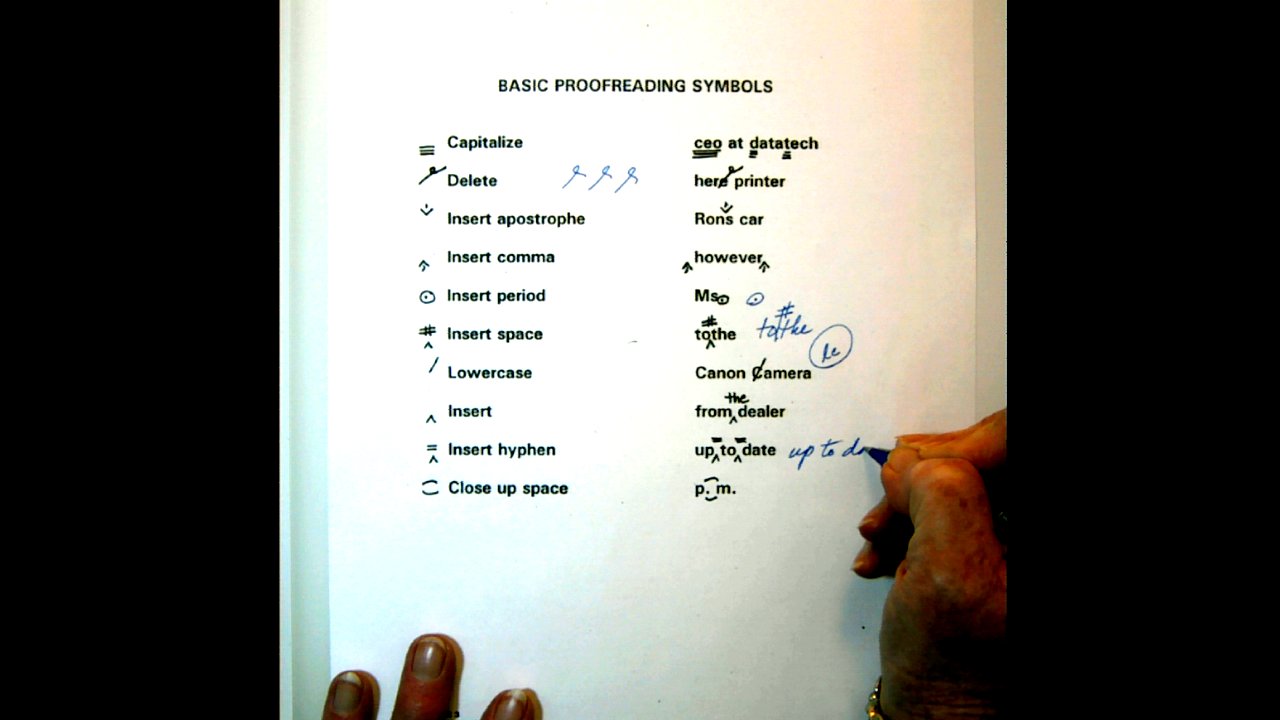 BASIC PROOFREADING SYMBOLS
Capitalize ceo at datatech
Delete here printer
Insert apostrophe Rons car
Insert comma however
Insert period Ms
# Insert space # tothe # to the
lc
Lowercase Canon Camera
the
Insert from dealer
= Insert hyphen up to date up to da
Close up space p. m.